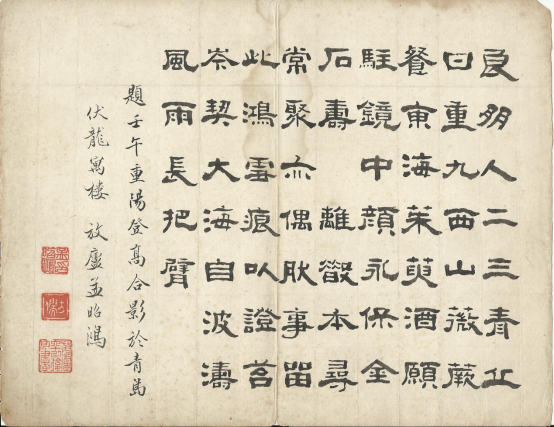 良朋人二三青丘
日重九西山薇蕨
餐東海茱萸酒願
駐鏡中顏永保金
石壽 離散本尋
常聚亦偶肰事留
此鴻雪痕以證苔
岑契大海自波濤
風雨長把臂
題壬午重陽登高合影於青島
伏龍寓楼 放廬孟昭鴻